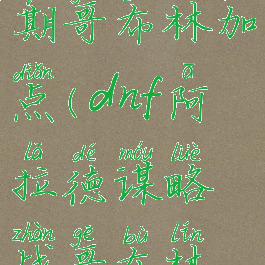 期哥布林加
diǎn ā
点(dnf阿
lā dé móu lüè
拉德谋略
zhàn gē bù lín
战哥布林